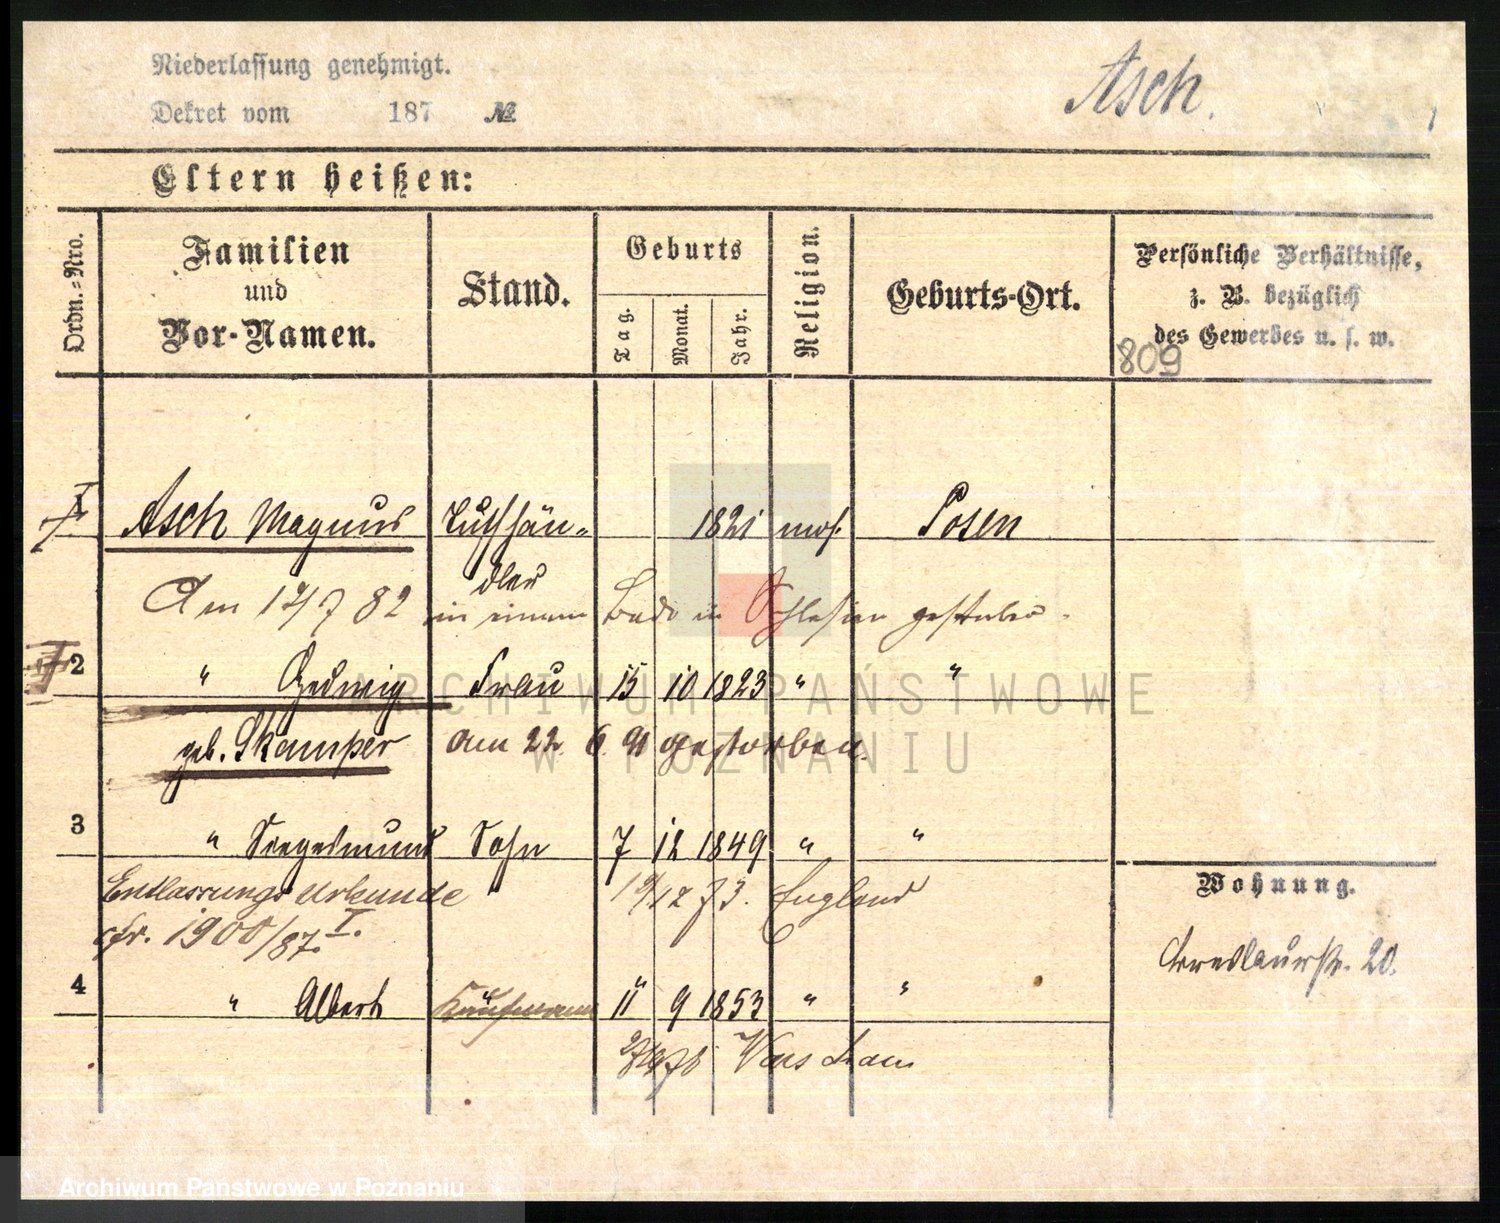 Niederlassung genehmigt.
Dekret vom 187 №
Asch.
Eltern heißen:
Ordn.-Nro.
Familien
und
Vor-Namen.
Stand.
Geburts
Tag.
Monat.
Jahr.
Religion.
Geburts-Ort.
Persönliche Verhältnisse,
z. B. bezüglich
des Gewerbes u. s. w.
809
I Asch Magnus 1821 mos. Posen
Am 17/7 82 in einem Bade in Schlesien gestorben.
2 " Hedwig Frau 15 10 1823 " "
geb. Skamper am 22. 6. 91 gestorben.
3 " Siegesmund Sohn 7 12 1849 " "
Entlassungs Urkunde 12 73. England
cfr. 1900/87. I.
4 " Albert Kaufmann 11 9 1853 " "
Warschau
Wohnung.
Breslauerstr. 20.
ARCHIWUM PAŃSTWOWE
W POZNANIU
Archiwum Państwowe w Poznaniu